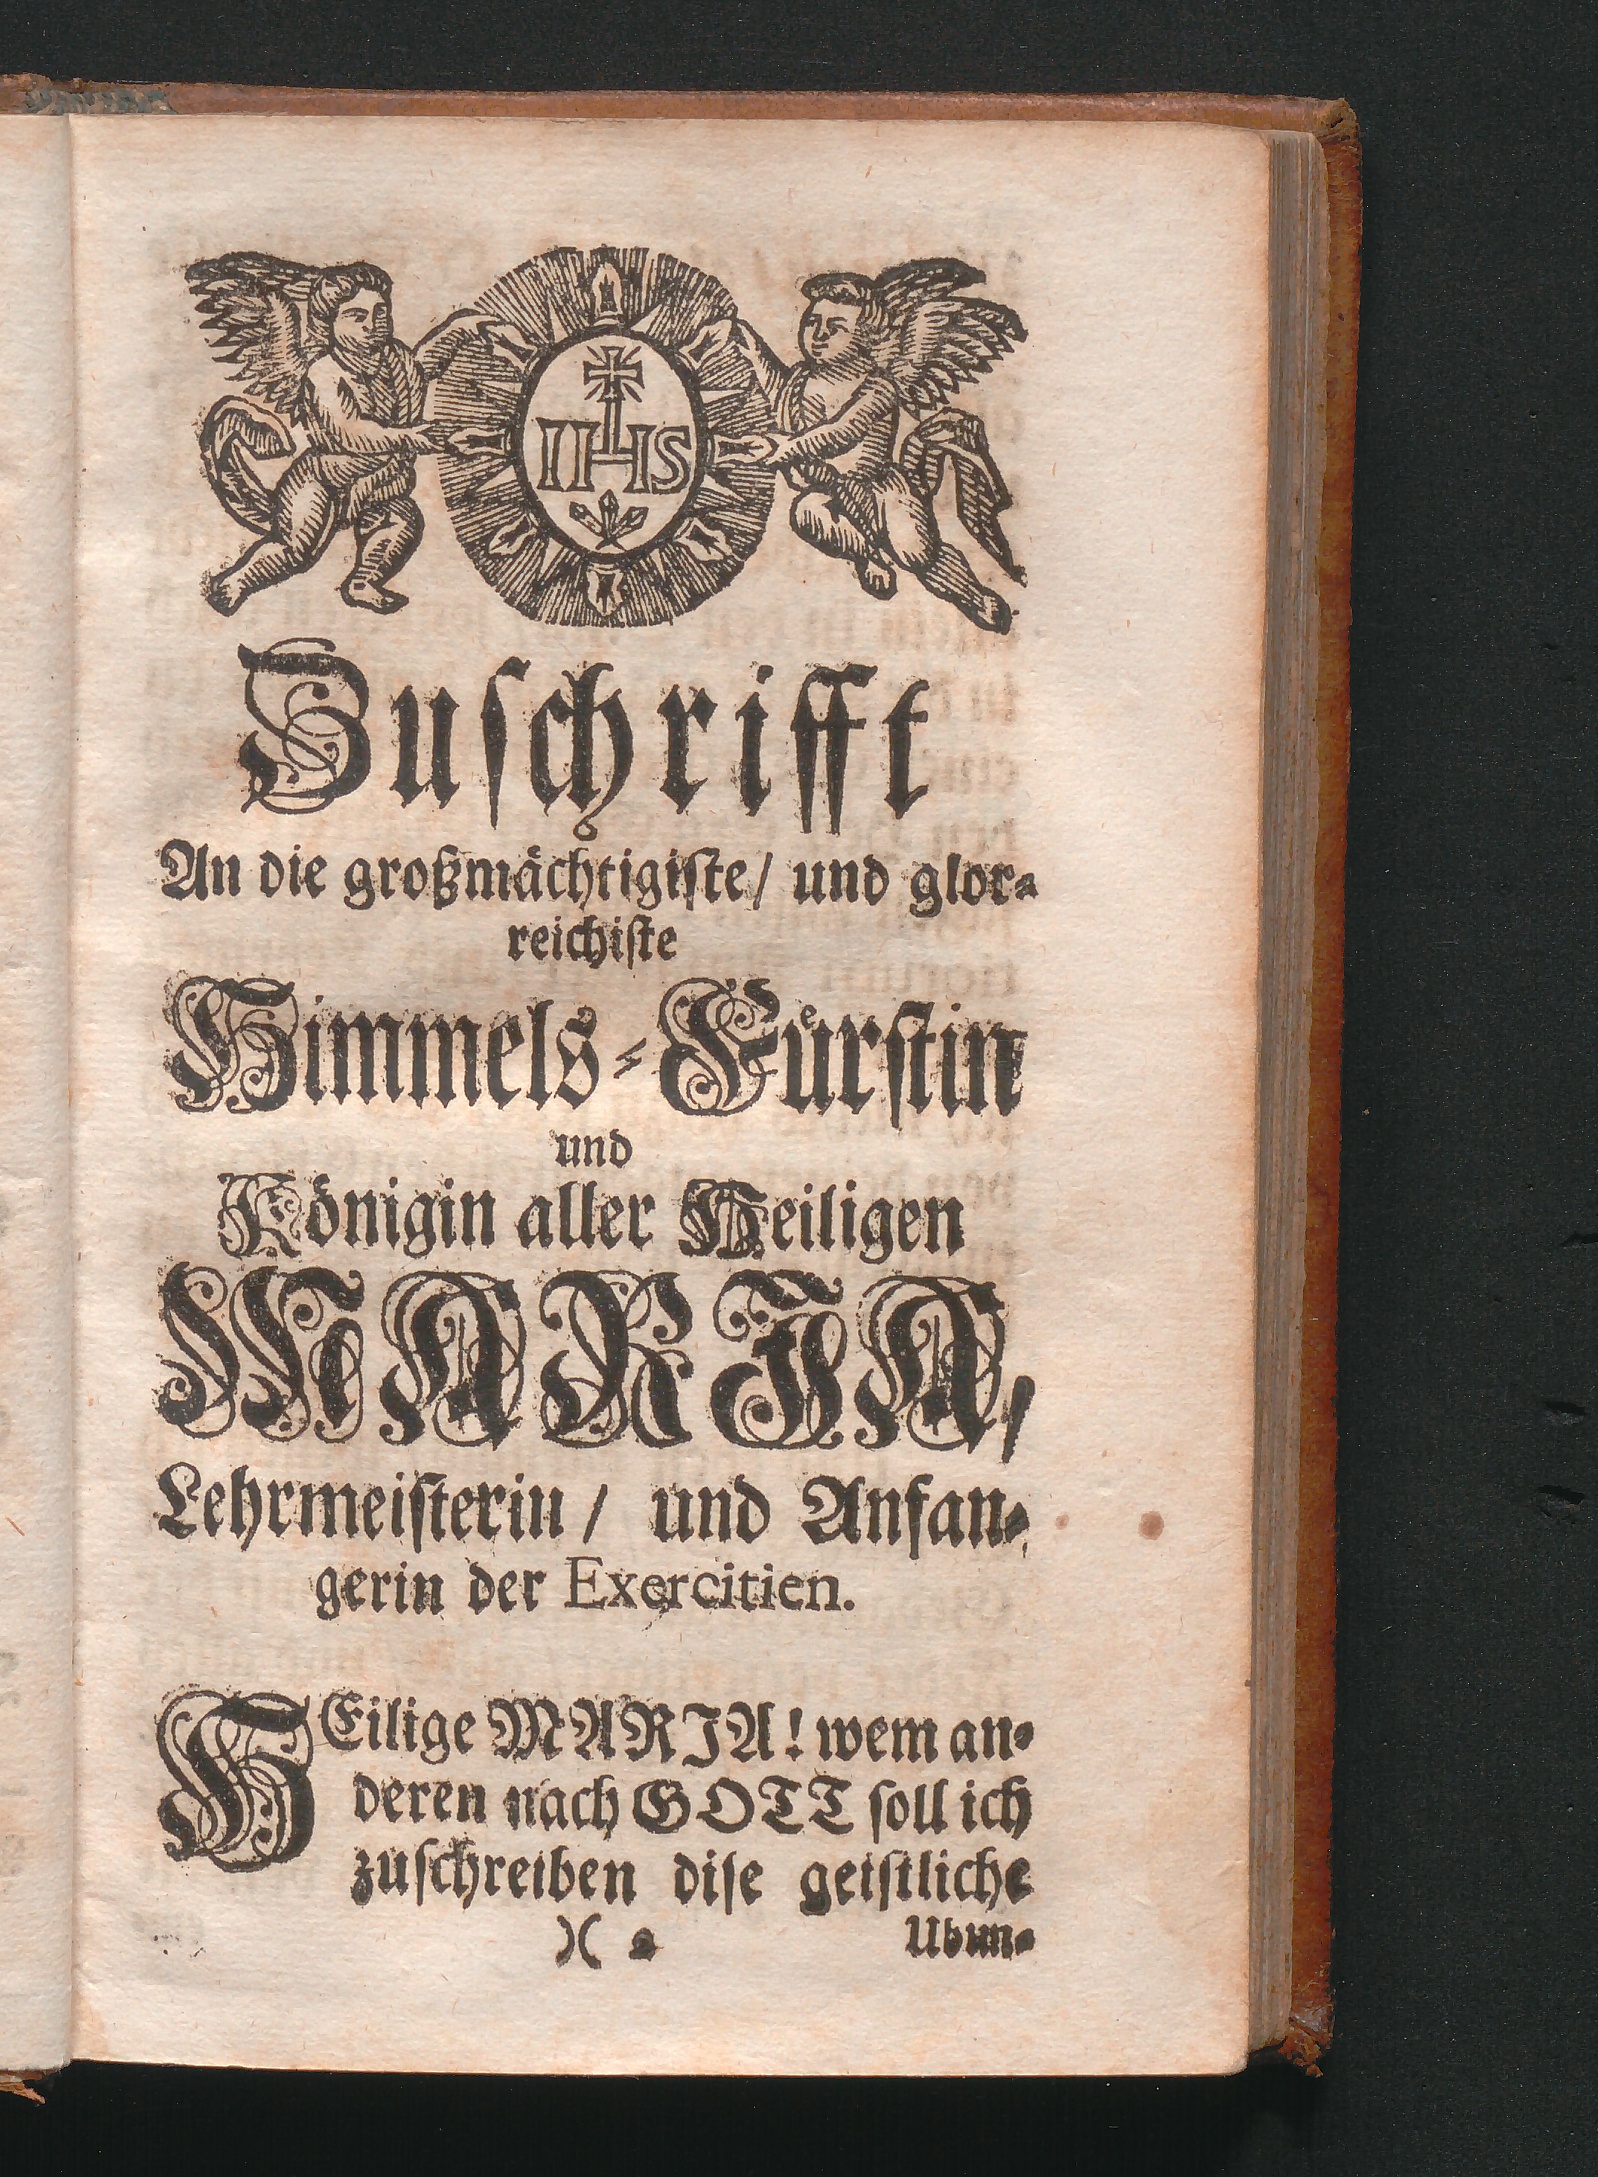 IHS
Zuschrifft
An die großmächtigiste/ und glor-
reichiste
Himmels-Fürstin
und
Königin aller Heiligen
MARJA,
Lehrmeisterin/ und Anfan-
gerin der Exercitien.
HEilige MARJA! wem an-
deren nach GOTT soll ich
zuschreiben dise geistliche
)( Ubun-